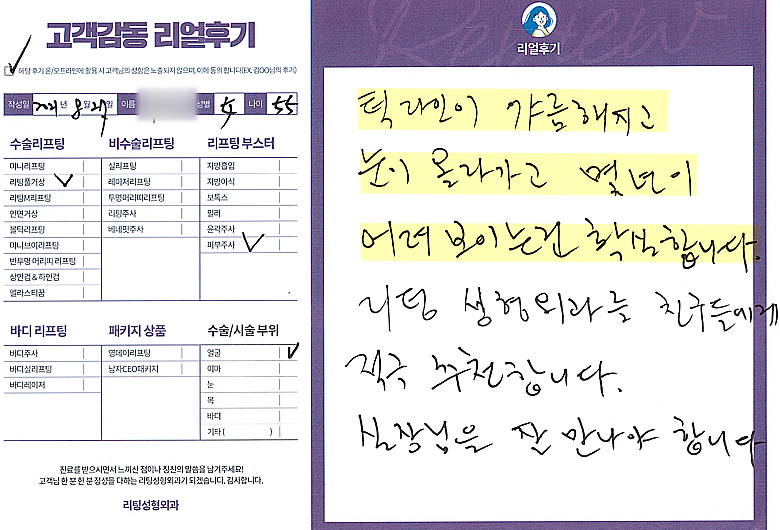 고객감동 리얼후기
해당 후기 온/오프라인에 활용 시 고객님의 성함은 노출되지 않으며, 이에 동의 합니다(EX. 김OO님의 후기)
작성일 2021년 8월 27일 이름 성별 女 나이 55
수술리프팅
미니리프팅
리팅풀기상
리팅M리프팅
안면거상
볼턱리프팅
미니브이리프팅
반투명 머리띠 리프팅
상안검 & 하안검
엘라스티꿈
비수술리프팅
실리프팅
레이저리프팅
투명머리띠리프팅
리팅주사
베네핏주사
리프팅 부스터
지방흡입
지방이식
보톡스
필러
윤곽주사
피부주사
바디 리프팅
바디주사
바디실리프팅
바디레이저
패키지 상품
영데이리프팅
남자CEO패키지
수술/시술 부위
얼굴
이마
눈
목
바디
기타 ( )
진료를 받으시면서 느끼신 점이나 칭찬의 말씀을 남겨주세요!
고객님 한 분 한 분 정성을 다하는 리팅성형외과가 되겠습니다. 감사합니다.
리팅성형외과
Review
리얼후기
턱라인이 갸름해지고
눈이 올라가고 몇년이
어려 보이는건 확실합니다.
리팅 성형외과를 친구들에게
적극 추천합니다.
실장님을 잘 만나야 합니다